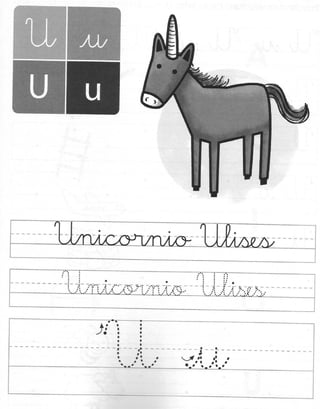 U u
U u
Unicornio Ulises
Unicornio Ulises
U u